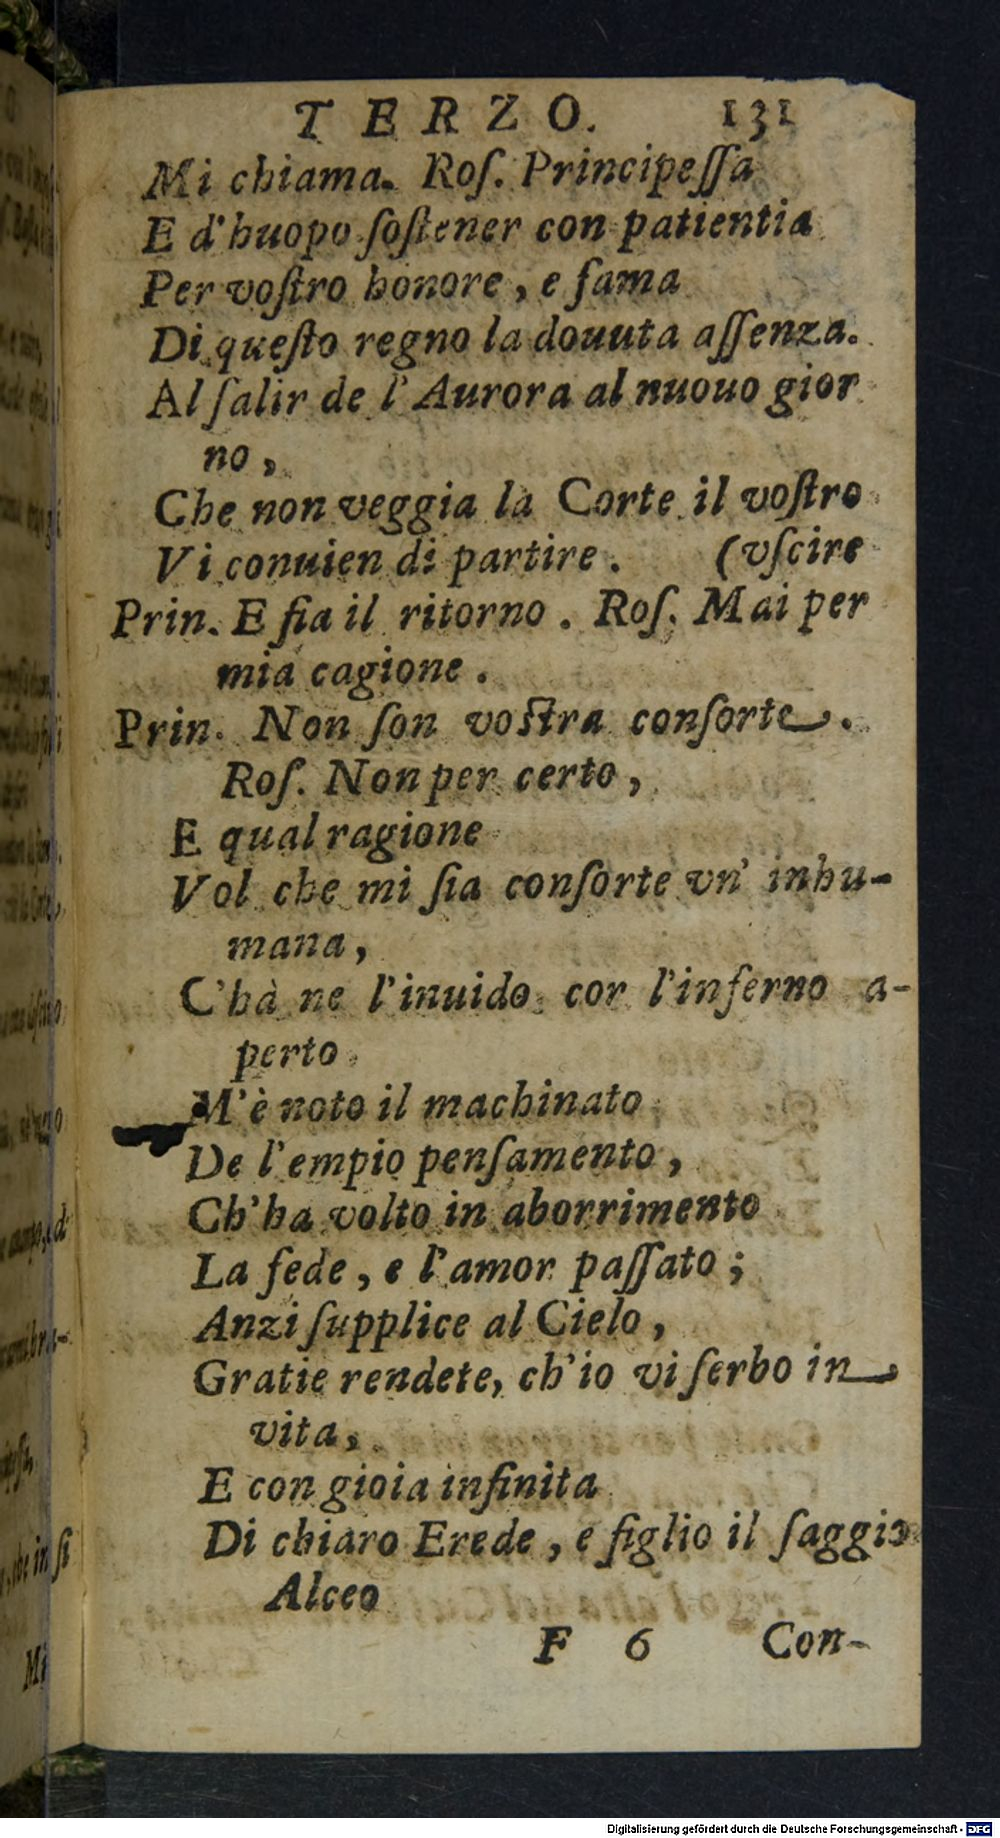 TERZO. 131
Mi chiama. Roſ. Principeſſa
E d'huopo ſoſtener con patientia
Per voſtro honore, e fama
Di queſto regno la douuta aſſenza.
Al ſalir de l'Aurora al nuouo gior
no,
Che non veggia la Corte il voſtro
Vi conuien di partire. (vſcire
Prin. E fia il ritorno. Roſ. Mai per
mia cagione.
Prin. Non ſon voſtra conſorte.
Roſ. Non per certo,
E qual ragione
Vol che mi ſia conſorte vn' inhu-
mana,
C'hà ne l'inuido cor l'inferno a-
perto
M'è noto il machinato
De l'empio penſamento,
Ch'ha volto in aborrimento
La fede, e l'amor paſſato;
Anzi ſupplice al Cielo,
Gratie rendete, ch'io vi ſerbo in
vita,
E con gioia infinita
Di chiaro Erede, e figlio il ſaggio
Alceo
F 6 Con-
Digitalisierung gefördert durch die Deutsche Forschungsgemeinschaft - DFG